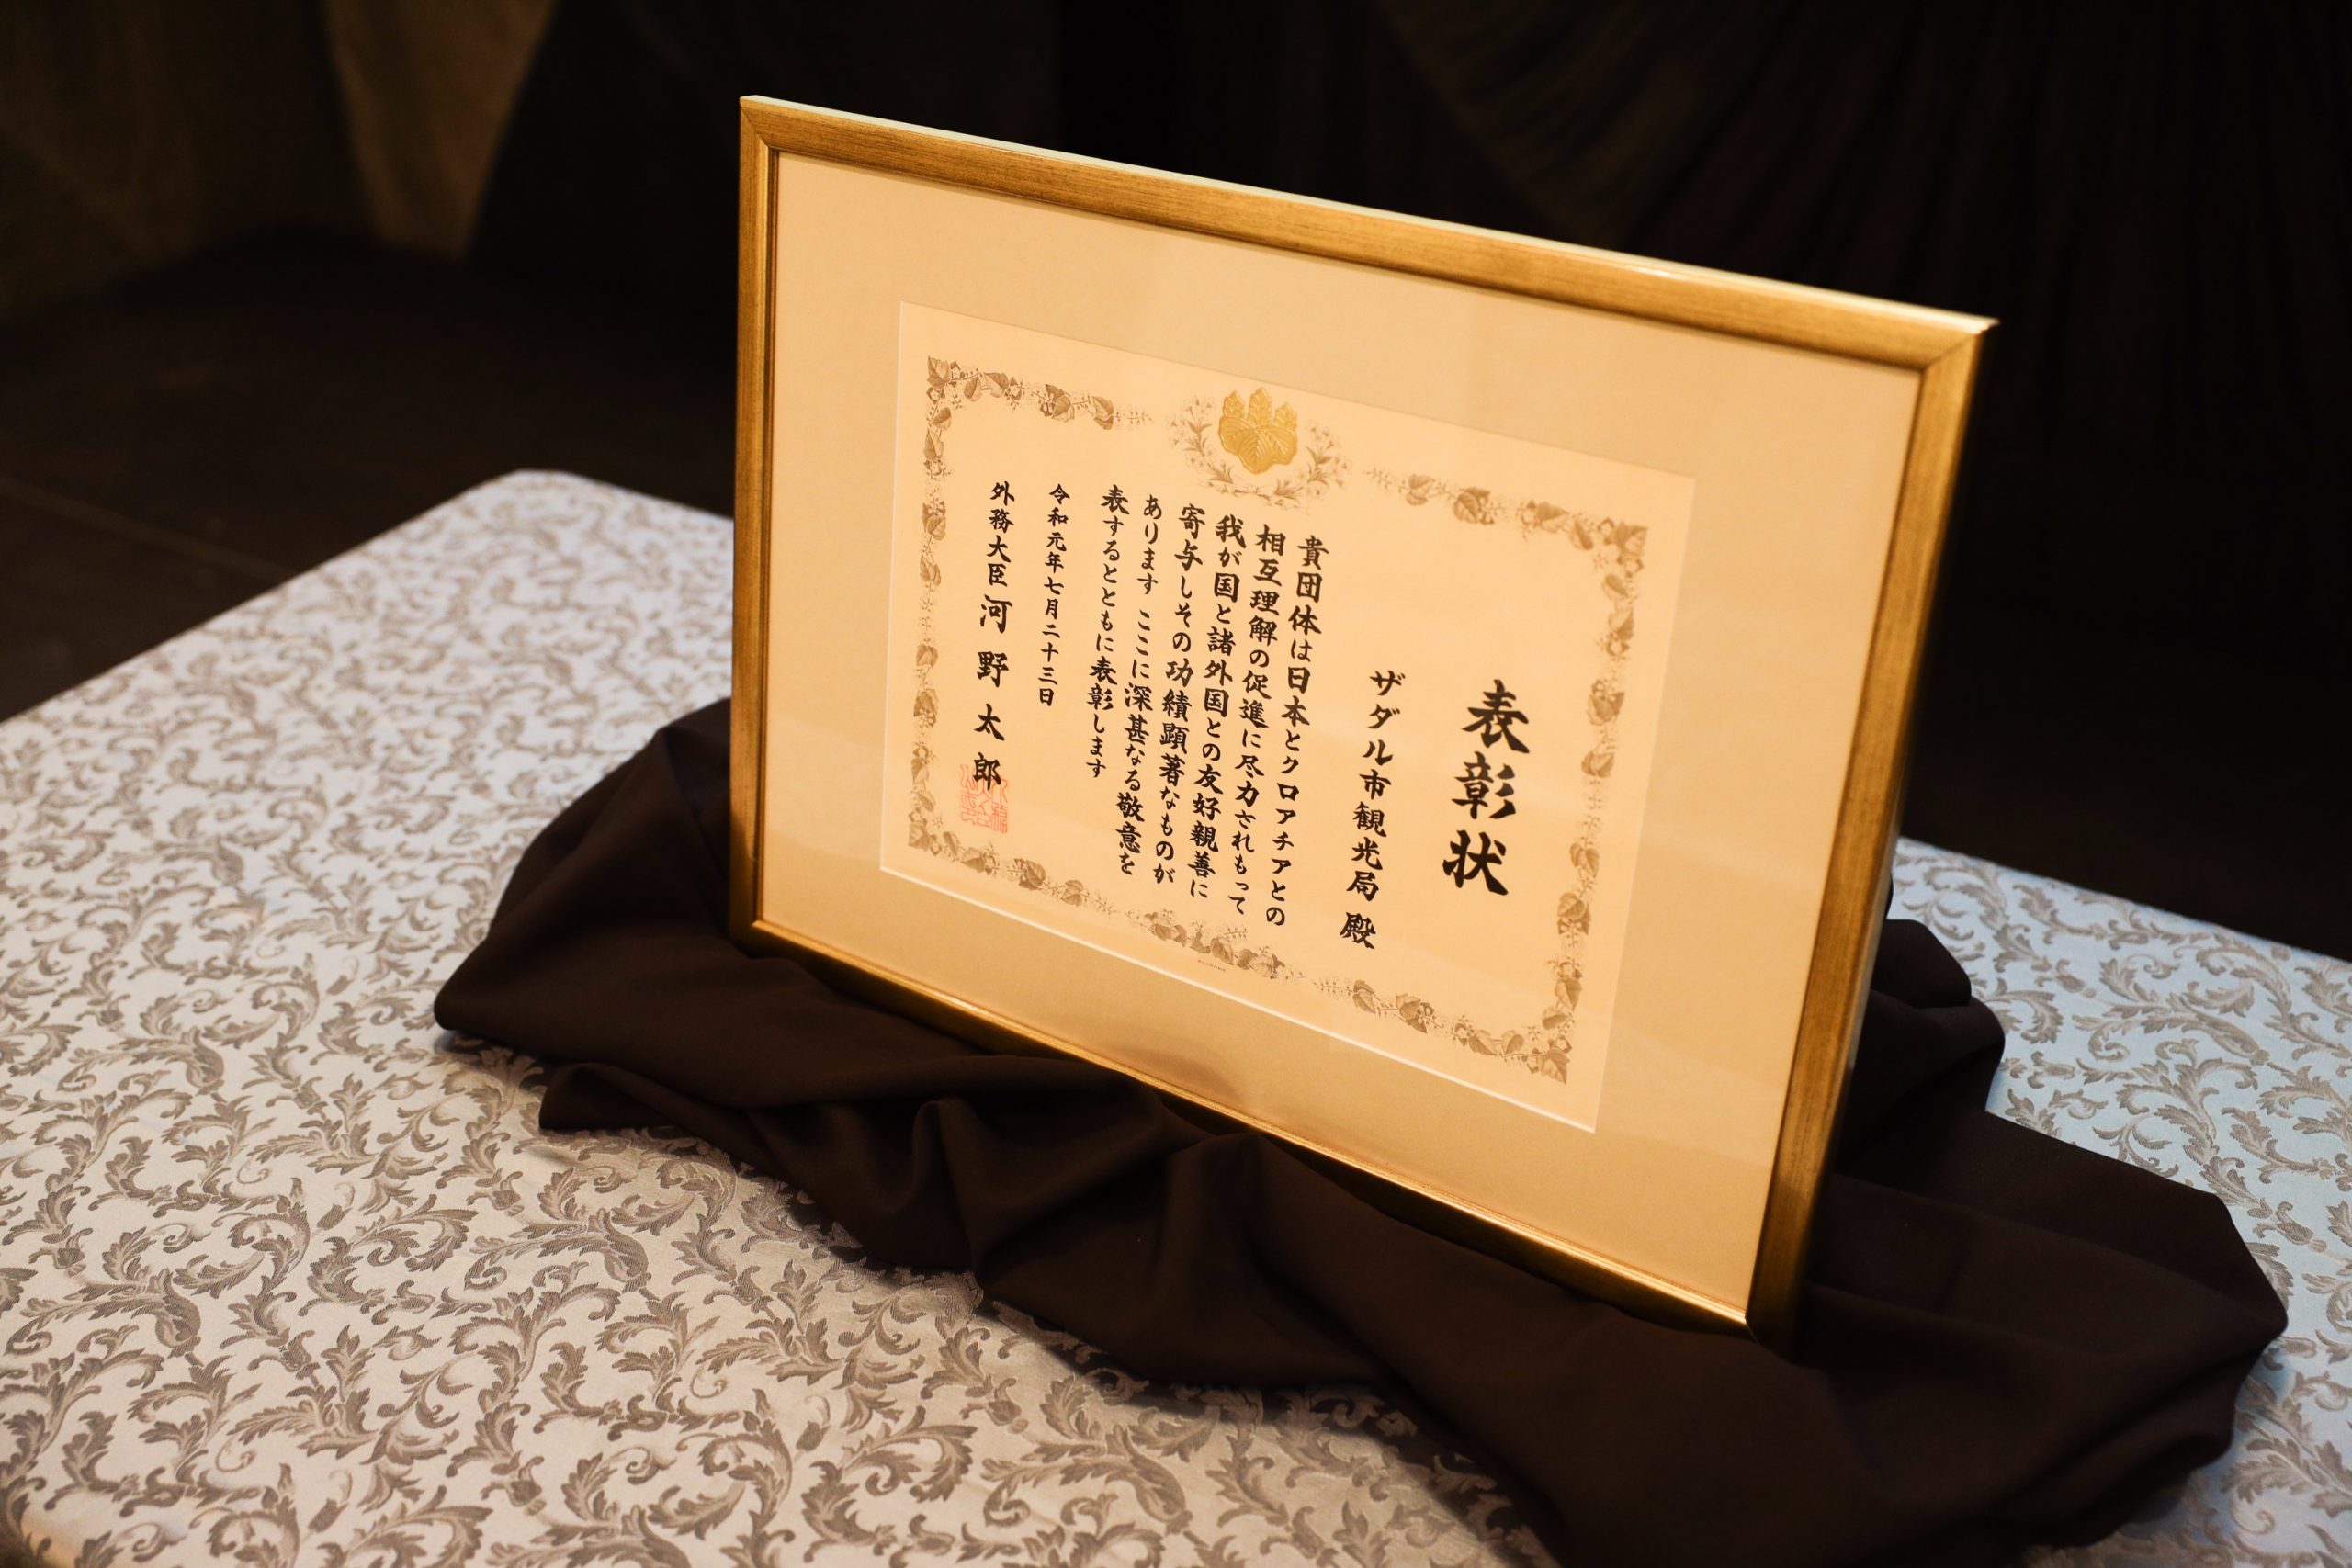 表彰状
ザダル市観光局 殿
貴団体は日本とクロアチアとの
相互理解の促進に尽力されもって
我が国と諸外国との友好親善に
寄与しその功績顕著なものが
あります ここに深甚なる敬意を
表するとともに表彰します
令和元年七月二十三日
外務大臣 河野太郎